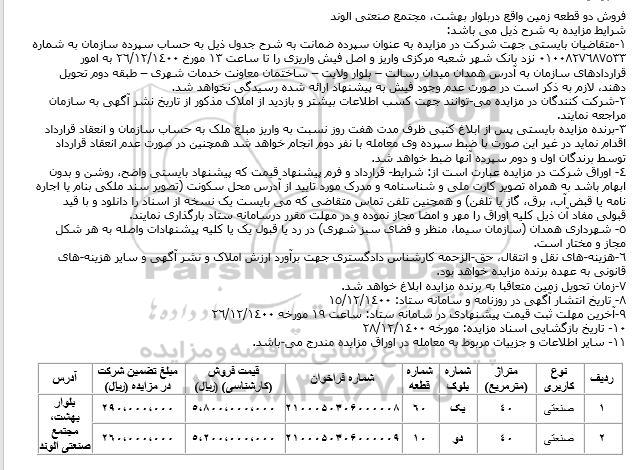 فروش دو قطعه زمین واقع دربلوار بهشت، مجتمع صنعتی الوند
شرایط مزایده به شرح ذیل می باشد:
۱-متقاضیان بایستی جهت شرکت در مزایده به عنوان سپرده ضمانت به شرح جدول ذیل به حساب سپرده سازمان به شماره
۰۱۰۰۸۲۷۶۸۷۵۳۳ نزد بانک شهر شعبه مرکزی واریز و اصل فیش واریزی را تا ساعت ۱۳ مورخ ۲۶/۱۲/۱۴۰۰ به امور
قراردادهای سازمان به آدرس همدان میدان رسالت – بلوار ولایت – ساختمان معاونت خدمات شهری – طبقه دوم تحویل
دهند، لازم به ذکر است در صورت عدم وجود فیش به پیشنهاد ارائه شده رسیدگی نخواهد شد.
۲-شرکت کنندگان در مزایده می-توانند جهت کسب اطلاعات بیشتر و بازدید از املاک مذکور از تاریخ نشر آگهی به سازمان
مراجعه نمایند.
۳-برنده مزایده بایستی پس از ابلاغ کتبی ظرف مدت هفت روز نسبت به واریز مبلغ ملک به حساب سازمان و انعقاد قرارداد
اقدام نماید در غیر این صورت با ضبط سپرده وی معامله با نفر دوم انجام خواهد شد همچنین در صورت عدم انعقاد قرارداد
توسط برندگان اول و دوم سپرده آنها ضبط خواهد شد.
۴- اوراق شرکت در مزایده عبارت است از: شرایط- قرارداد و فرم پیشنهاد قیمت که پیشنهاد بایستی واضح، روشن و بدون
ابهام باشد به همراه تصویر کارت ملی و شناسنامه و مدرک مورد تایید از آدرس محل سکونت (تصویر سند ملکی بنام یا اجاره
نامه یا قبض آب، برق، گاز یا تلفن) و همچنین تلفن تماس متقاضی که می بایست یک نسخه از اسناد را دانلود و با قید
قبولی مفاد آن ذیل کلیه اوراق را مهر و امضا مجاز نموده و در مهلت مقرر درسامانه ستاد بارگذاری نمایند.
۵- شهرداری همدان (سازمان سیما، منظر و فضای سبز شهری) در رد یا قبول یک یا کلیه پیشنهادات واصله به هر شکل
مجاز و مختار است.
۶-هزینه-های نقل و انتقال، حق-الزحمه کارشناس دادگستری جهت برآورد ارزش املاک و نشر آگهی و سایر هزینه-های
قانونی به عهده برنده مزایده خواهد بود.
۷-زمان تحویل زمین متعاقبا به برنده مزایده ابلاغ خواهد شد.
۸- تاریخ انتشار آگهی در روزنامه و سامانه ستاد: ۱۵/۱۲/۱۴۰۰
۹-آخرین مهلت ثبت قیمت پیشنهادی در سامانه ستاد: ساعت ۱۹ مورخه ۲۶/۱۲/۱۴۰۰
۱۰- تاریخ بازگشایی اسناد مزایده: مورخه ۲۸/۱۲/۱۴۰۰
۱۱- سایر اطلاعات و جزییات مربوط به معامله در اوراق مزایده مندرج می-باشد.
ردیف نوع کاربری متراژ (مترمربع) شماره بلوک شماره قطعه شماره فراخوان قیمت فروش (کارشناسی) (ریال) مبلغ تضمین شرکت در مزایده (ریال) آدرس
۱ صنعتی ۴۰ یک ۶۰ ۲۱۰۰۰۵۰۳۰۶۰۰۰۰۰۸ ۵,۸۰۰,۰۰۰,۰۰۰ ۲۹۰,۰۰۰,۰۰۰ بلوار بهشت، مجتمع صنعتی الوند
۲ صنعتی ۴۰ دو ۱۰ ۲۱۰۰۰۵۰۳۰۶۰۰۰۰۰۹ ۵,۲۰۰,۰۰۰,۰۰۰ ۲۶۰,۰۰۰,۰۰۰
ParsNamadData